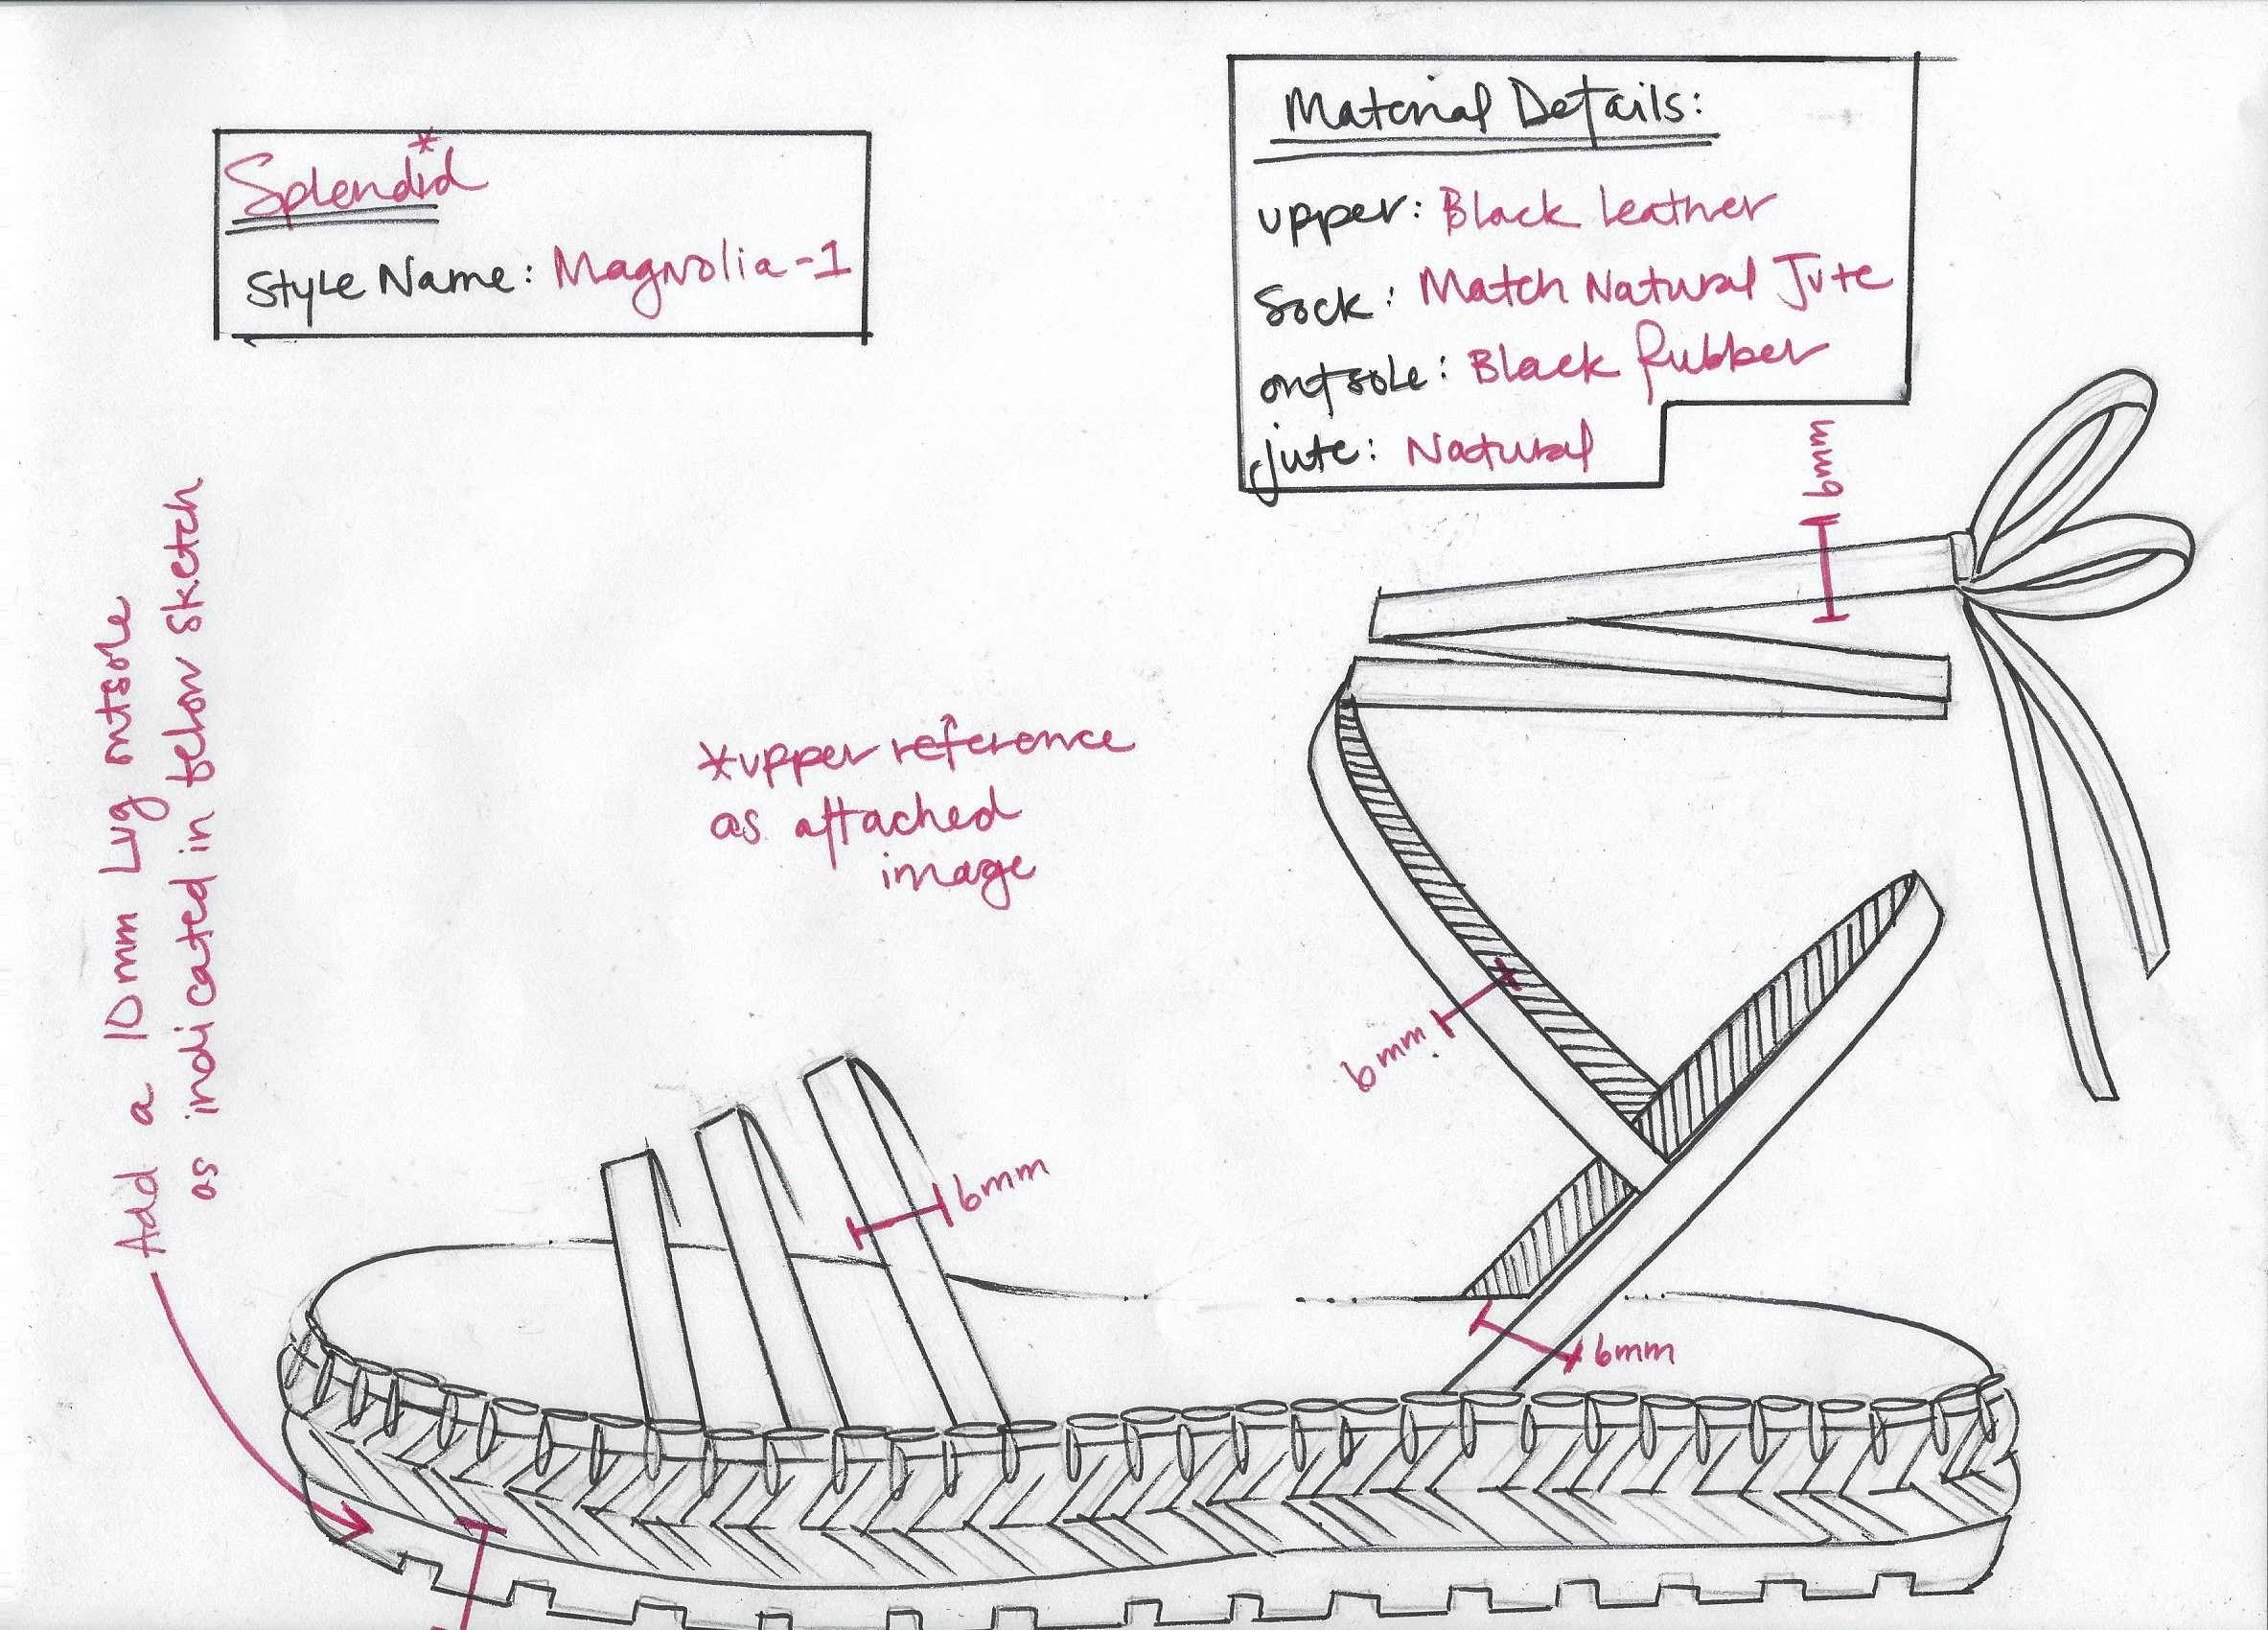 Splendid*
Style Name: Magnolia-1
Material Details:
upper: Black leather
Sock: Match Natural Jute
outsole: Black Rubber
Jute: Natural
6mm
Add a 10mm Lug outsole
as indicated in below sketch
*upper reference
as attached
image
6mm
6mm
6mm